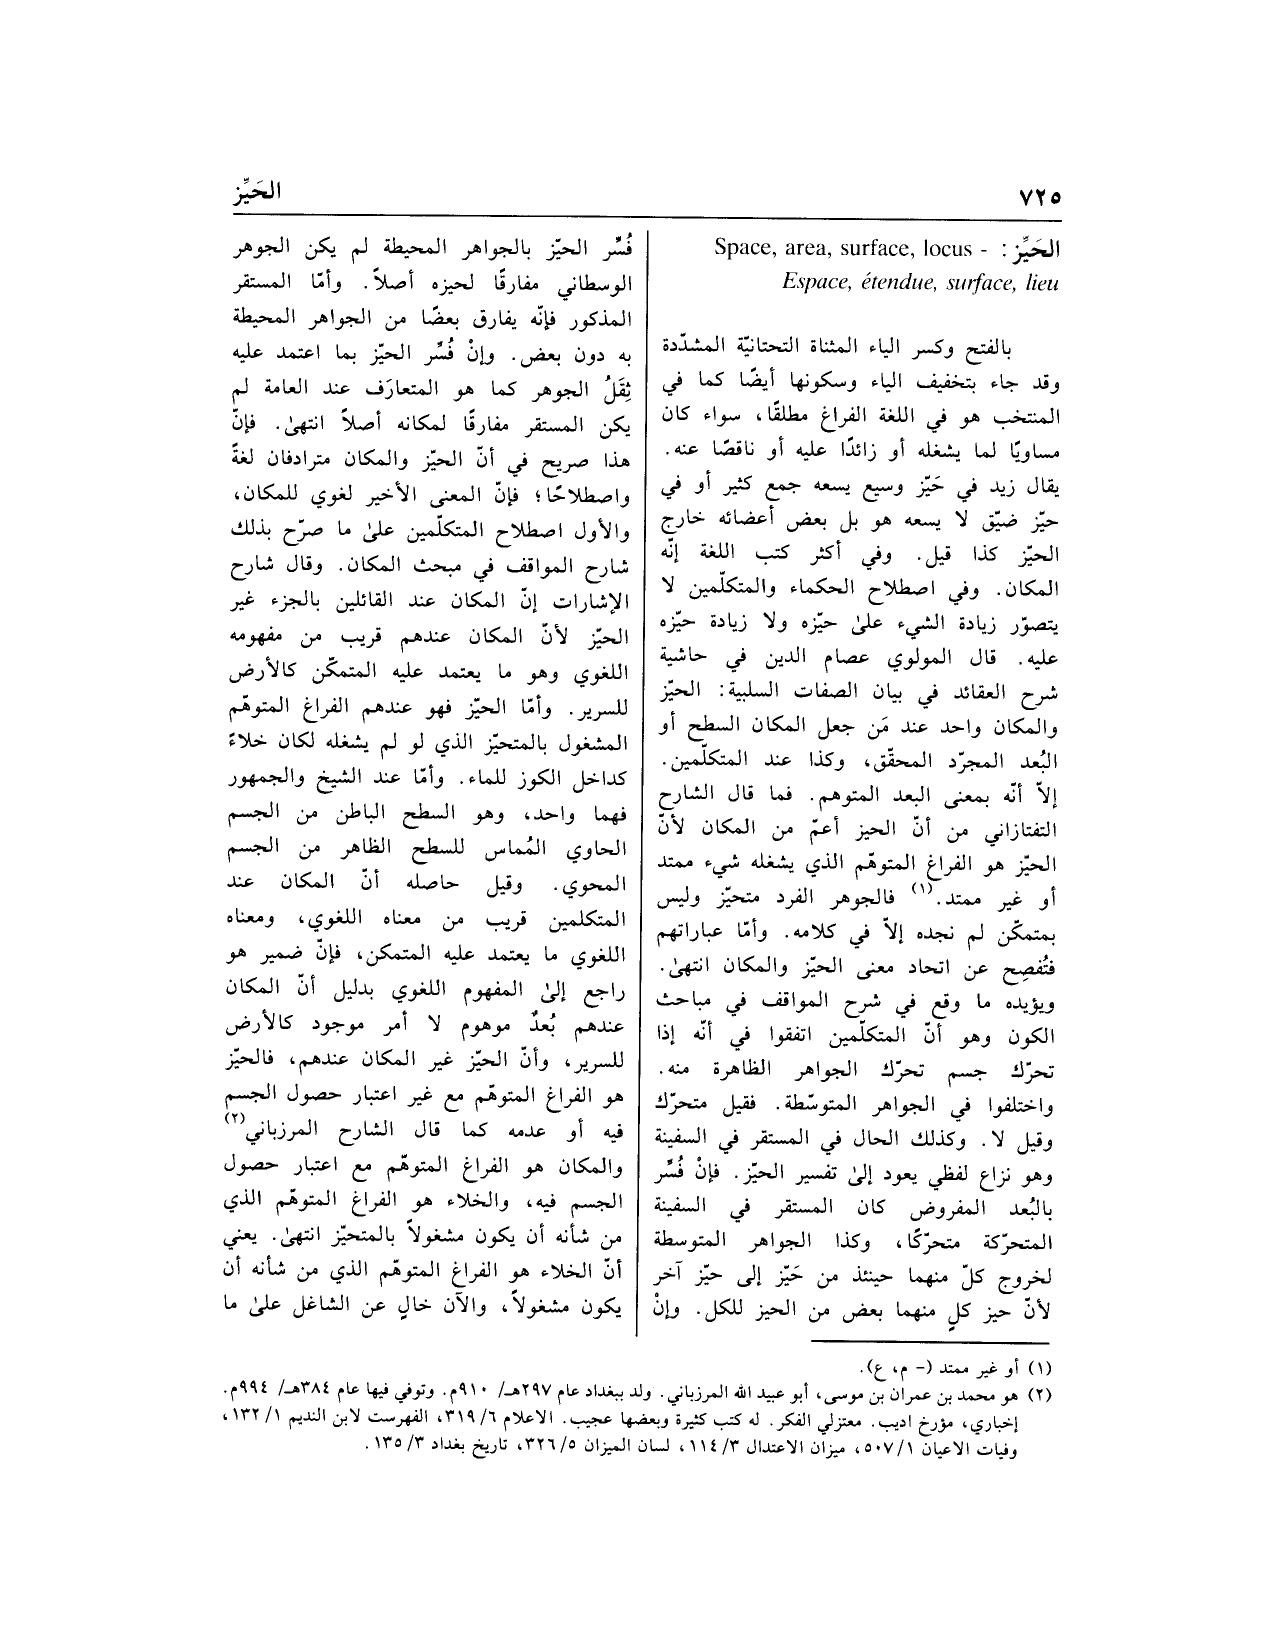 ٧٢٥
الحَيِّز
الحَيِّز : - Space, area, surface, locus
Espace, étendue, surface, lieu
بالفتح وكسر الياء المثناة التحتانيّة المشدّدة
وقد جاء بتخفيف الياء وسكونها أيضًا كما في
المنتخب هو في اللغة الفراغ مطلقًا، سواء كان
مساويًا لما يشغله أو زائدًا عليه أو ناقصًا عنه.
يقال زيد في حَيّز وسيع يسعه جمع كثير أو في
حيّز ضيّق لا يسعه هو بل بعض أعضائه خارج
الحيّز كذا قيل. وفي أكثر كتب اللغة إنّه
المكان. وفي اصطلاح الحكماء والمتكلّمين لا
يتصوّر زيادة الشيء علىٰ حيّزه ولا زيادة حيّزه
عليه. قال المولوي عصام الدين في حاشية
شرح العقائد في بيان الصفات السلبية: الحيّز
والمكان واحد عند مَن جعل المكان السطح أو
البُعد المجرّد المحقّق، وكذا عند المتكلّمين.
إلاّ أنّه بمعنى البعد المتوهم. فما قال الشارح
التفتازاني من أنّ الحيز أعمّ من المكان لأنّ
الحيّز هو الفراغ المتوهّم الذي يشغله شيء ممتد
أو غير ممتد.(١) فالجوهر الفرد متحيّز وليس
بمتمكّن لم نجده إلاّ في كلامه. وأمّا عباراتهم
فتُفصِح عن اتحاد معنى الحيّز والمكان انتهىٰ.
ويؤيده ما وقع في شرح المواقف في مباحث
الكون وهو أنّ المتكلّمين اتفقوا في أنّه إذا
تحرّك جسم تحرّك الجواهر الظاهرة منه.
واختلفوا في الجواهر المتوسّطة. فقيل متحرّك
وقيل لا. وكذلك الحال في المستقر في السفينة
وهو نزاع لفظي يعود إلىٰ تفسير الحيّز. فإنْ فُسِّر
بالبُعد المفروض كان المستقر في السفينة
المتحرّكة متحرّكًا، وكذا الجواهر المتوسطة
لخروج كلّ منهما حينئذ من حَيّز إلى حيّز آخر
لأنّ حيز كلٍ منهما بعض من الحيز للكل. وإنْ
فُسِّر الحيّز بالجواهر المحيطة لم يكن الجوهر
الوسطاني مفارقًا لحيزه أصلاً. وأمّا المستقر
المذكور فإنّه يفارق بعضًا من الجواهر المحيطة
به دون بعض. وإنْ فُسِّر الحيّز بما اعتمد عليه
ثِقَلُ الجوهر كما هو المتعارَف عند العامة لم
يكن المستقر مفارقًا لمكانه أصلاً انتهىٰ. فإنّ
هذا صريح في أنّ الحيّز والمكان مترادفان لغةً
واصطلاحًا؛ فإنّ المعنى الأخير لغوي للمكان،
والأول اصطلاح المتكلّمين علىٰ ما صرّح بذلك
شارح المواقف في مبحث المكان. وقال شارح
الإشارات إنّ المكان عند القائلين بالجزء غير
الحيّز لأنّ المكان عندهم قريب من مفهومه
اللغوي وهو ما يعتمد عليه المتمكّن كالأرض
للسرير. وأمّا الحيّز فهو عندهم الفراغ المتوهّم
المشغول بالمتحيّز الذي لو لم يشغله لكان خلاءً
كداخل الكوز للماء. وأمّا عند الشيخ والجمهور
فهما واحد، وهو السطح الباطن من الجسم
الحاوي المُماس للسطح الظاهر من الجسم
المحوي. وقيل حاصله أنّ المكان عند
المتكلمين قريب من معناه اللغوي، ومعناه
اللغوي ما يعتمد عليه المتمكن، فإنّ ضمير هو
راجع إلىٰ المفهوم اللغوي بدليل أنّ المكان
عندهم بُعدٌ موهوم لا أمر موجود كالأرض
للسرير، وأنّ الحيّز غير المكان عندهم، فالحيّز
هو الفراغ المتوهّم مع غير اعتبار حصول الجسم
فيه أو عدمه كما قال الشارح المرزباني(٢)
والمكان هو الفراغ المتوهّم مع اعتبار حصول
الجسم فيه، والخلاء هو الفراغ المتوهّم الذي
من شأنه أن يكون مشغولاً بالمتحيّز انتهىٰ. يعني
أنّ الخلاء هو الفراغ المتوهّم الذي من شأنه أن
يكون مشغولاً، والآن خالٍ عن الشاغل علىٰ ما
(١) أو غير ممتد (- م، ع).
(٢) هو محمد بن عمران بن موسى، أبو عبيد الله المرزباني. ولد ببغداد عام ٢٩٧هـ/ ٩١٠م. وتوفي فيها عام ٣٨٤هـ/ ٩٩٤م.
إخباري، مؤرخ اديب. معتزلي الفكر. له كتب كثيرة وبعضها عجيب. الاعلام ٦/ ٣١٩، الفهرست لابن النديم ١/ ١٣٢،
وفيات الاعيان ١/ ٥٠٧، ميزان الاعتدال ٣/ ١١٤، لسان الميزان ٥/ ٣٢٦، تاريخ بغداد ٣/ ١٣٥.